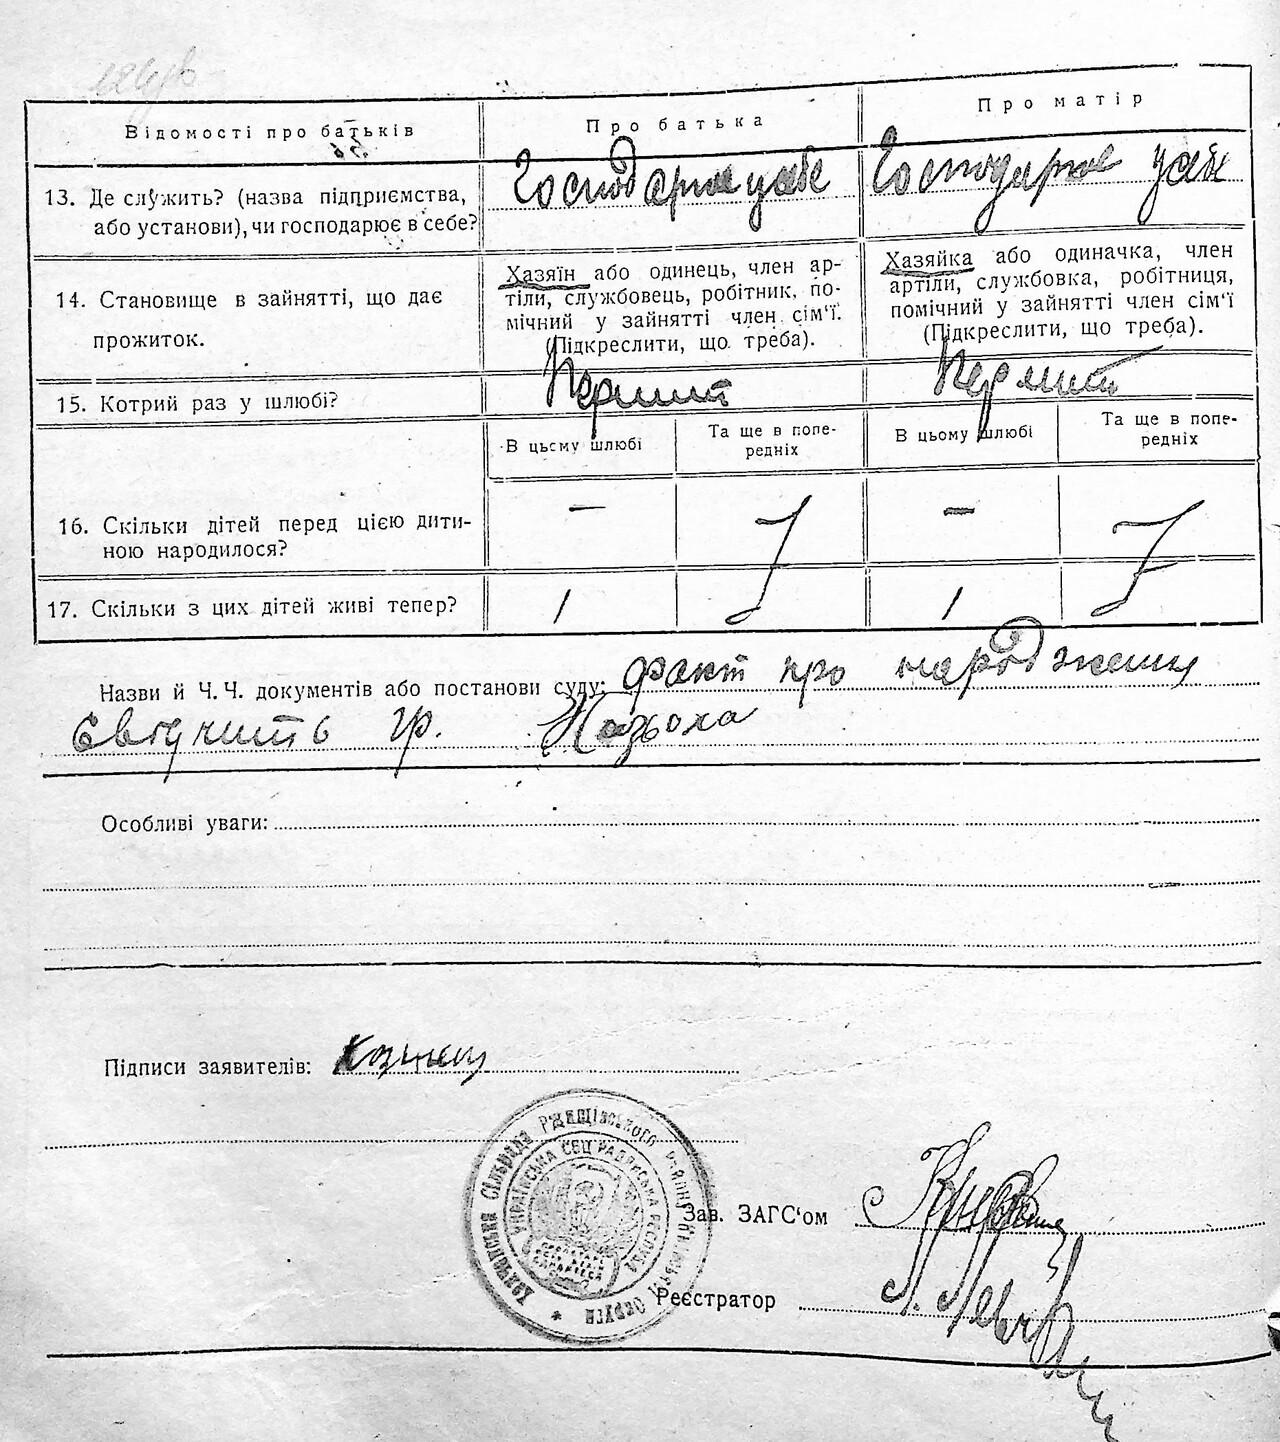 Відомості про батьків
Про батька
Про матір
13. Де служить? (назва підприємства,
або установи), чи господарює в себе?
Господарює у себе
Господарює у себе
14. Становище в зайнятті, що дає
прожиток.
Хазяїн або одинець, член ар-
тіли, службовець, робітник, по-
мічний у зайнятті член сім'ї.
(Підкреслити, що треба).
Хазяйка або одиначка, член
артіли, службовка, робітниця,
помічний у зайнятті член сім'ї
(Підкреслити, що треба).
15. Котрий раз у шлюбі?
Перший
Перший
В цьому шлюбі
Та ще в попе-
редніх
В цьому шлюбі
Та ще в попе-
редніх
16. Скільки дітей перед цією дити-
ною народилося?
—
—
17. Скільки з цих дітей живі тепер?
1
1
Назви й Ч. Ч. документів або постанови суду: факт про народження
гр.
Особливі уваги:
Підписи заявителів:
Сільрада Ржищівського району
УКРАЇНСЬКА СОЦ РАДЯНСЬКА РЕСПУБ
ОКРУГИ
Зав. ЗАГС'ом
Реєстратор